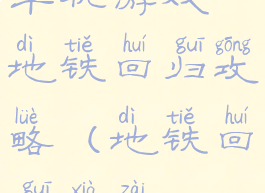 dì tiě huí guī gōng
地铁回归攻
lüè dì tiě huí
略（地铁回
guī xià zài